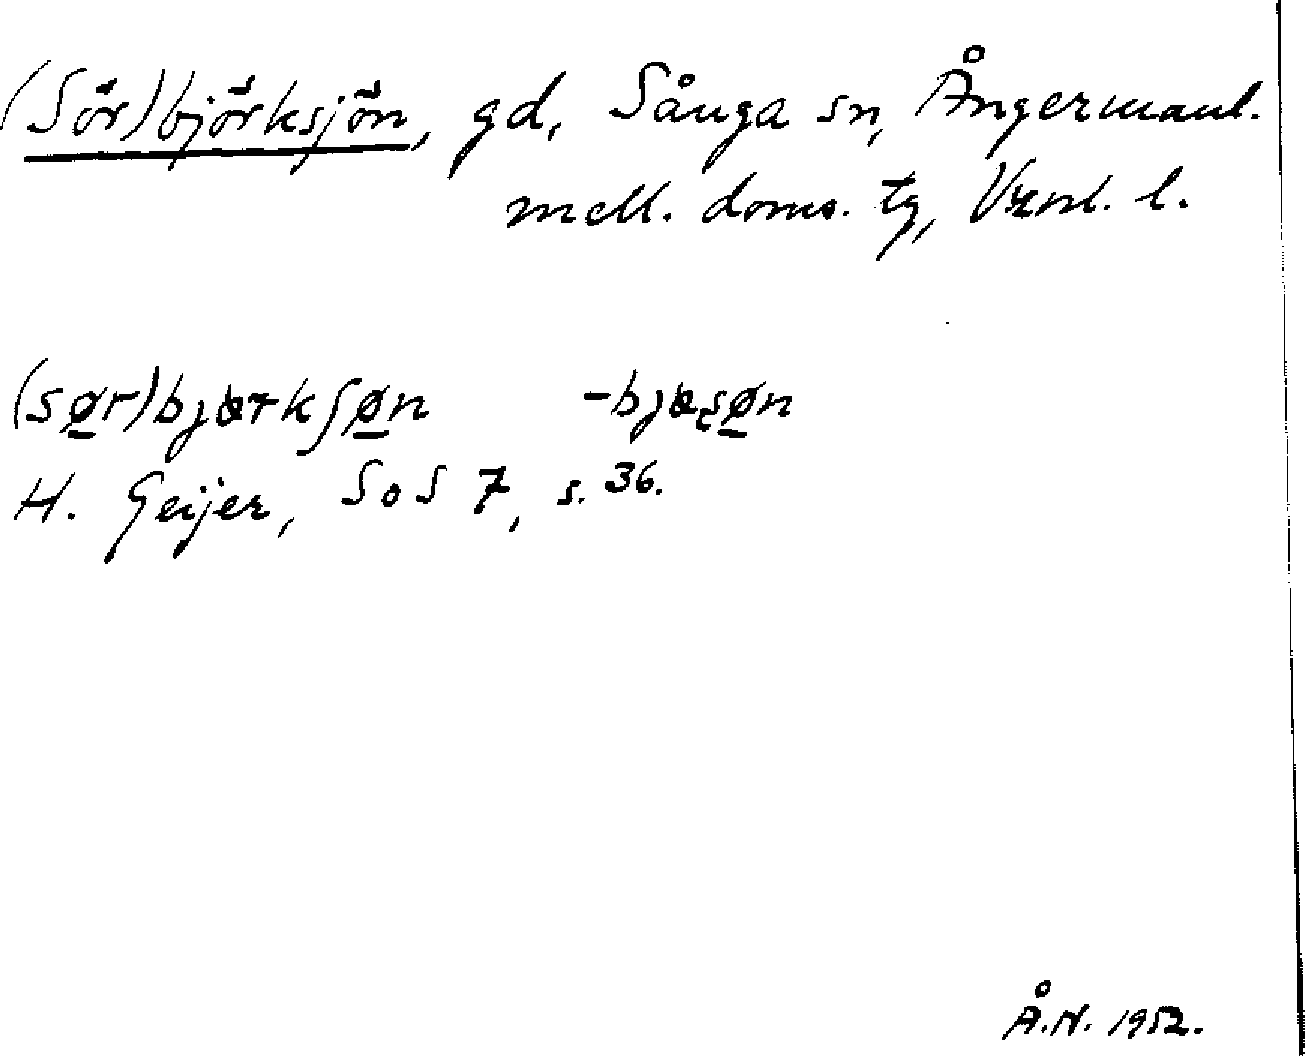 (Sör)björksjön, gd, Sånga sn, Ångermanl.
mell. doms. tg, Vznl. l.
(sø̱r)bjɵrkʃø̱n -bjɵʂø̱n
H. Geijer, SoS 7, s. 36.
Å.N. 1952.